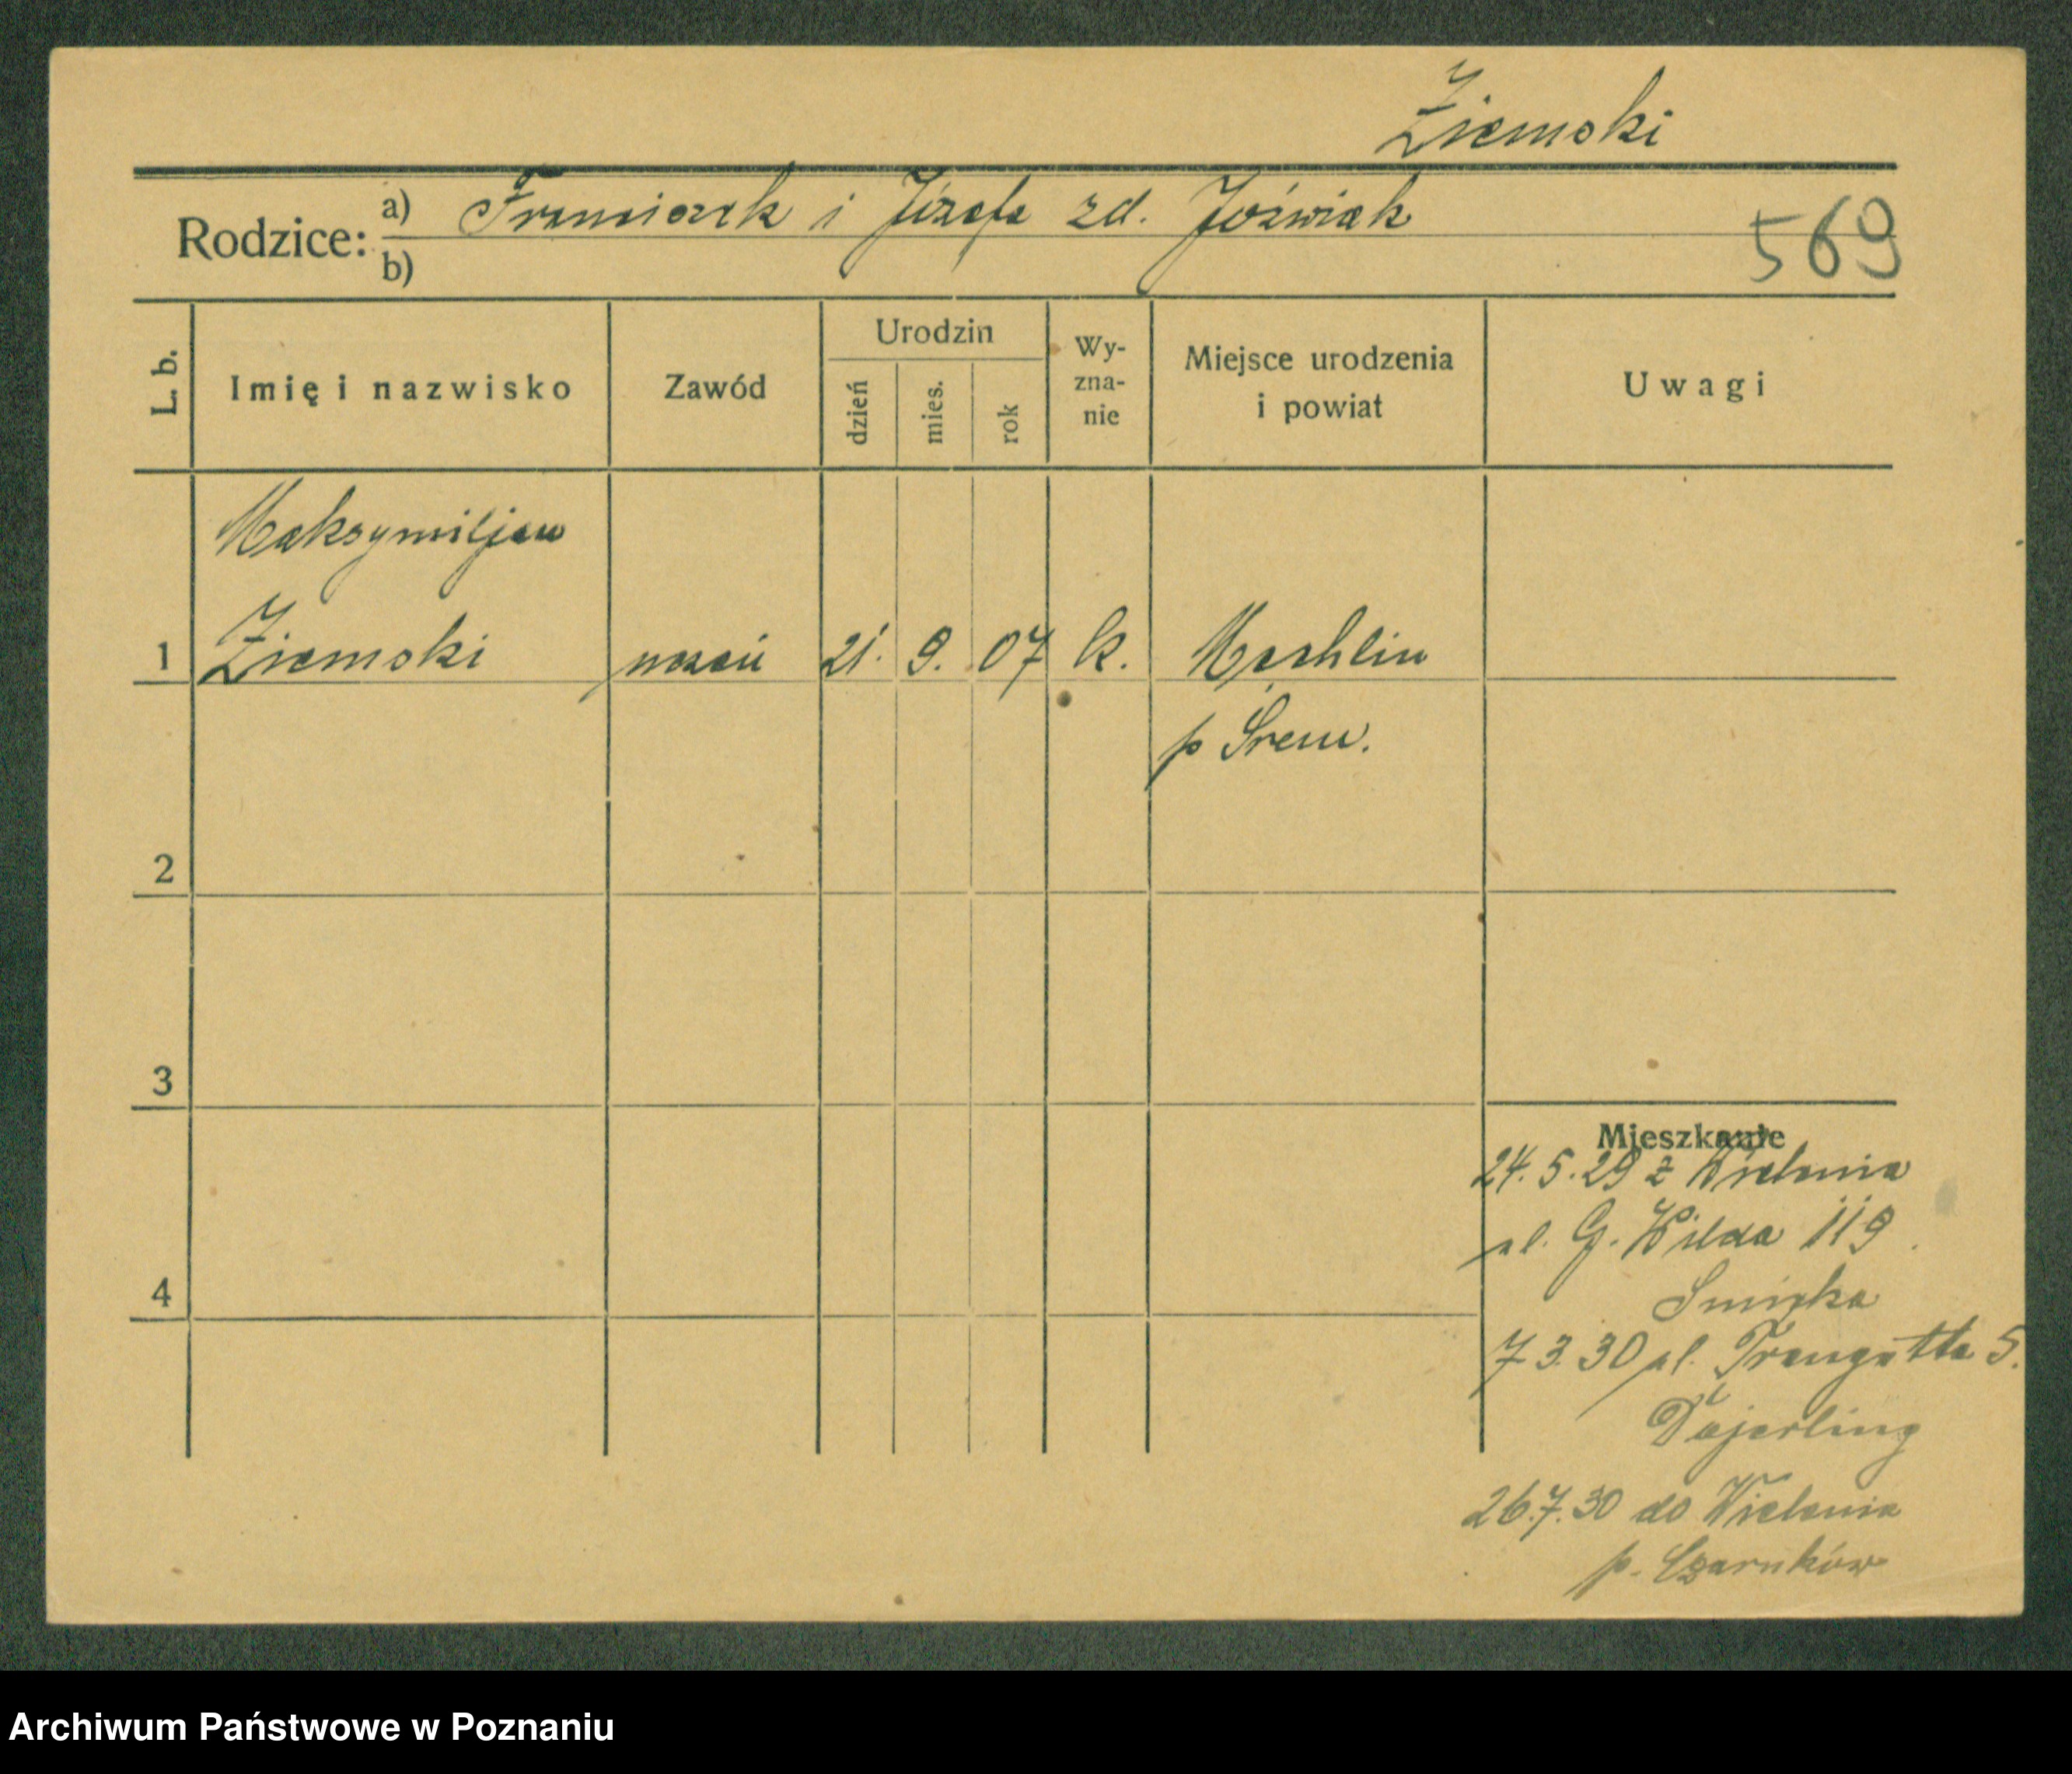 Ziemski
Rodzice: a) Franciszek i Józefa zd. Jóźwiak
b)
569
L. b.
Imię i nazwisko
Zawód
Urodzin
dzień
mies.
rok
Wy-
zna-
nie
Miejsce urodzenia
i powiat
Uwagi
Maksymiljan
1 Ziemski uczeń 21. 9. 07 k. Mechlin
p Śrem.
2
3
4
Mieszkanie
24. 5. 29 z Wielenia
ul. G. Wilda 119
7 3. 30 ul. Traugutta 5.
26.7.30 do Wielenia
p. Czarnków
Archiwum Państwowe w Poznaniu